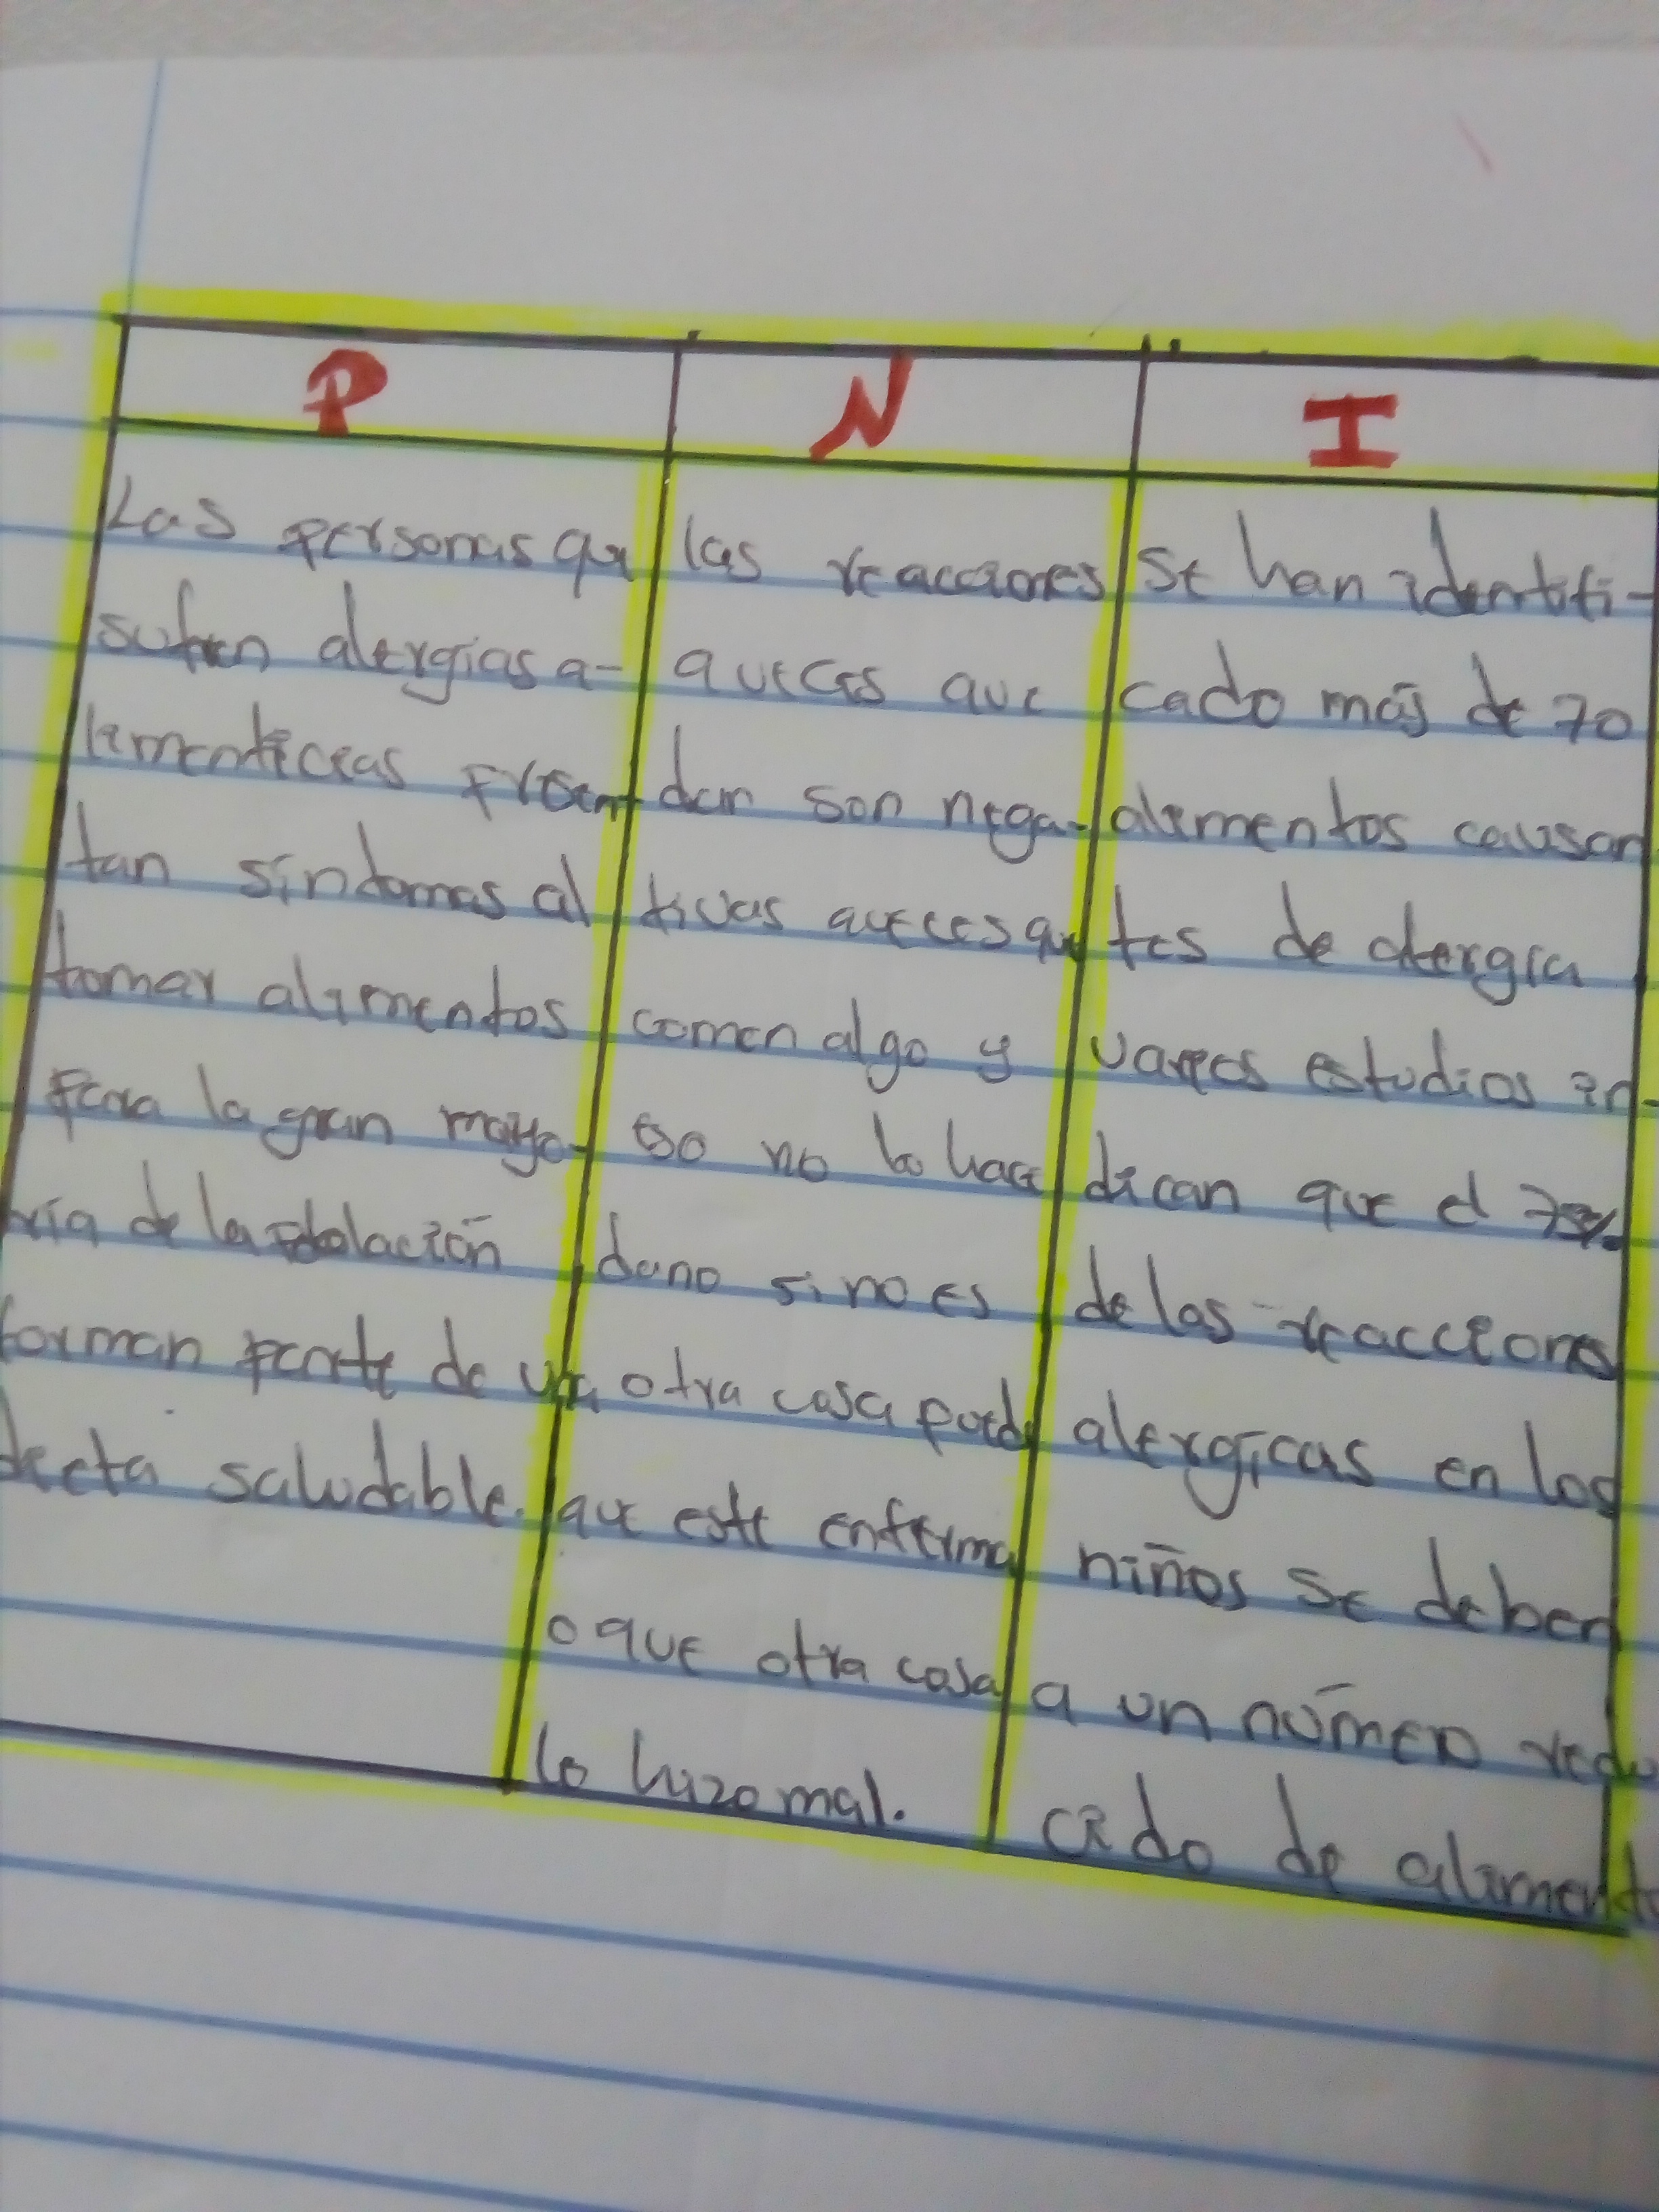 P
N
I
Las personas que
sufren alergias a-
limenticias presen
tan sindomas al
tomar alimentos
para la gran mayo-
ría de la población
forman parte de una
dieta saludable.
las reacciones
aveces que
dan son nega-
tivas aveces que
comen algo y
eso no lo hace
dano sino es
otra cosa puede
que este enferma
o que otra cosa
lo hizo mal.
Se han identifi-
cado más de 70
alimentos causan
tes de alergia
varios estudios in-
dican que el 75%
de las reacciones
alergicas en los
niños se deben
a un número redu
cido de alimento